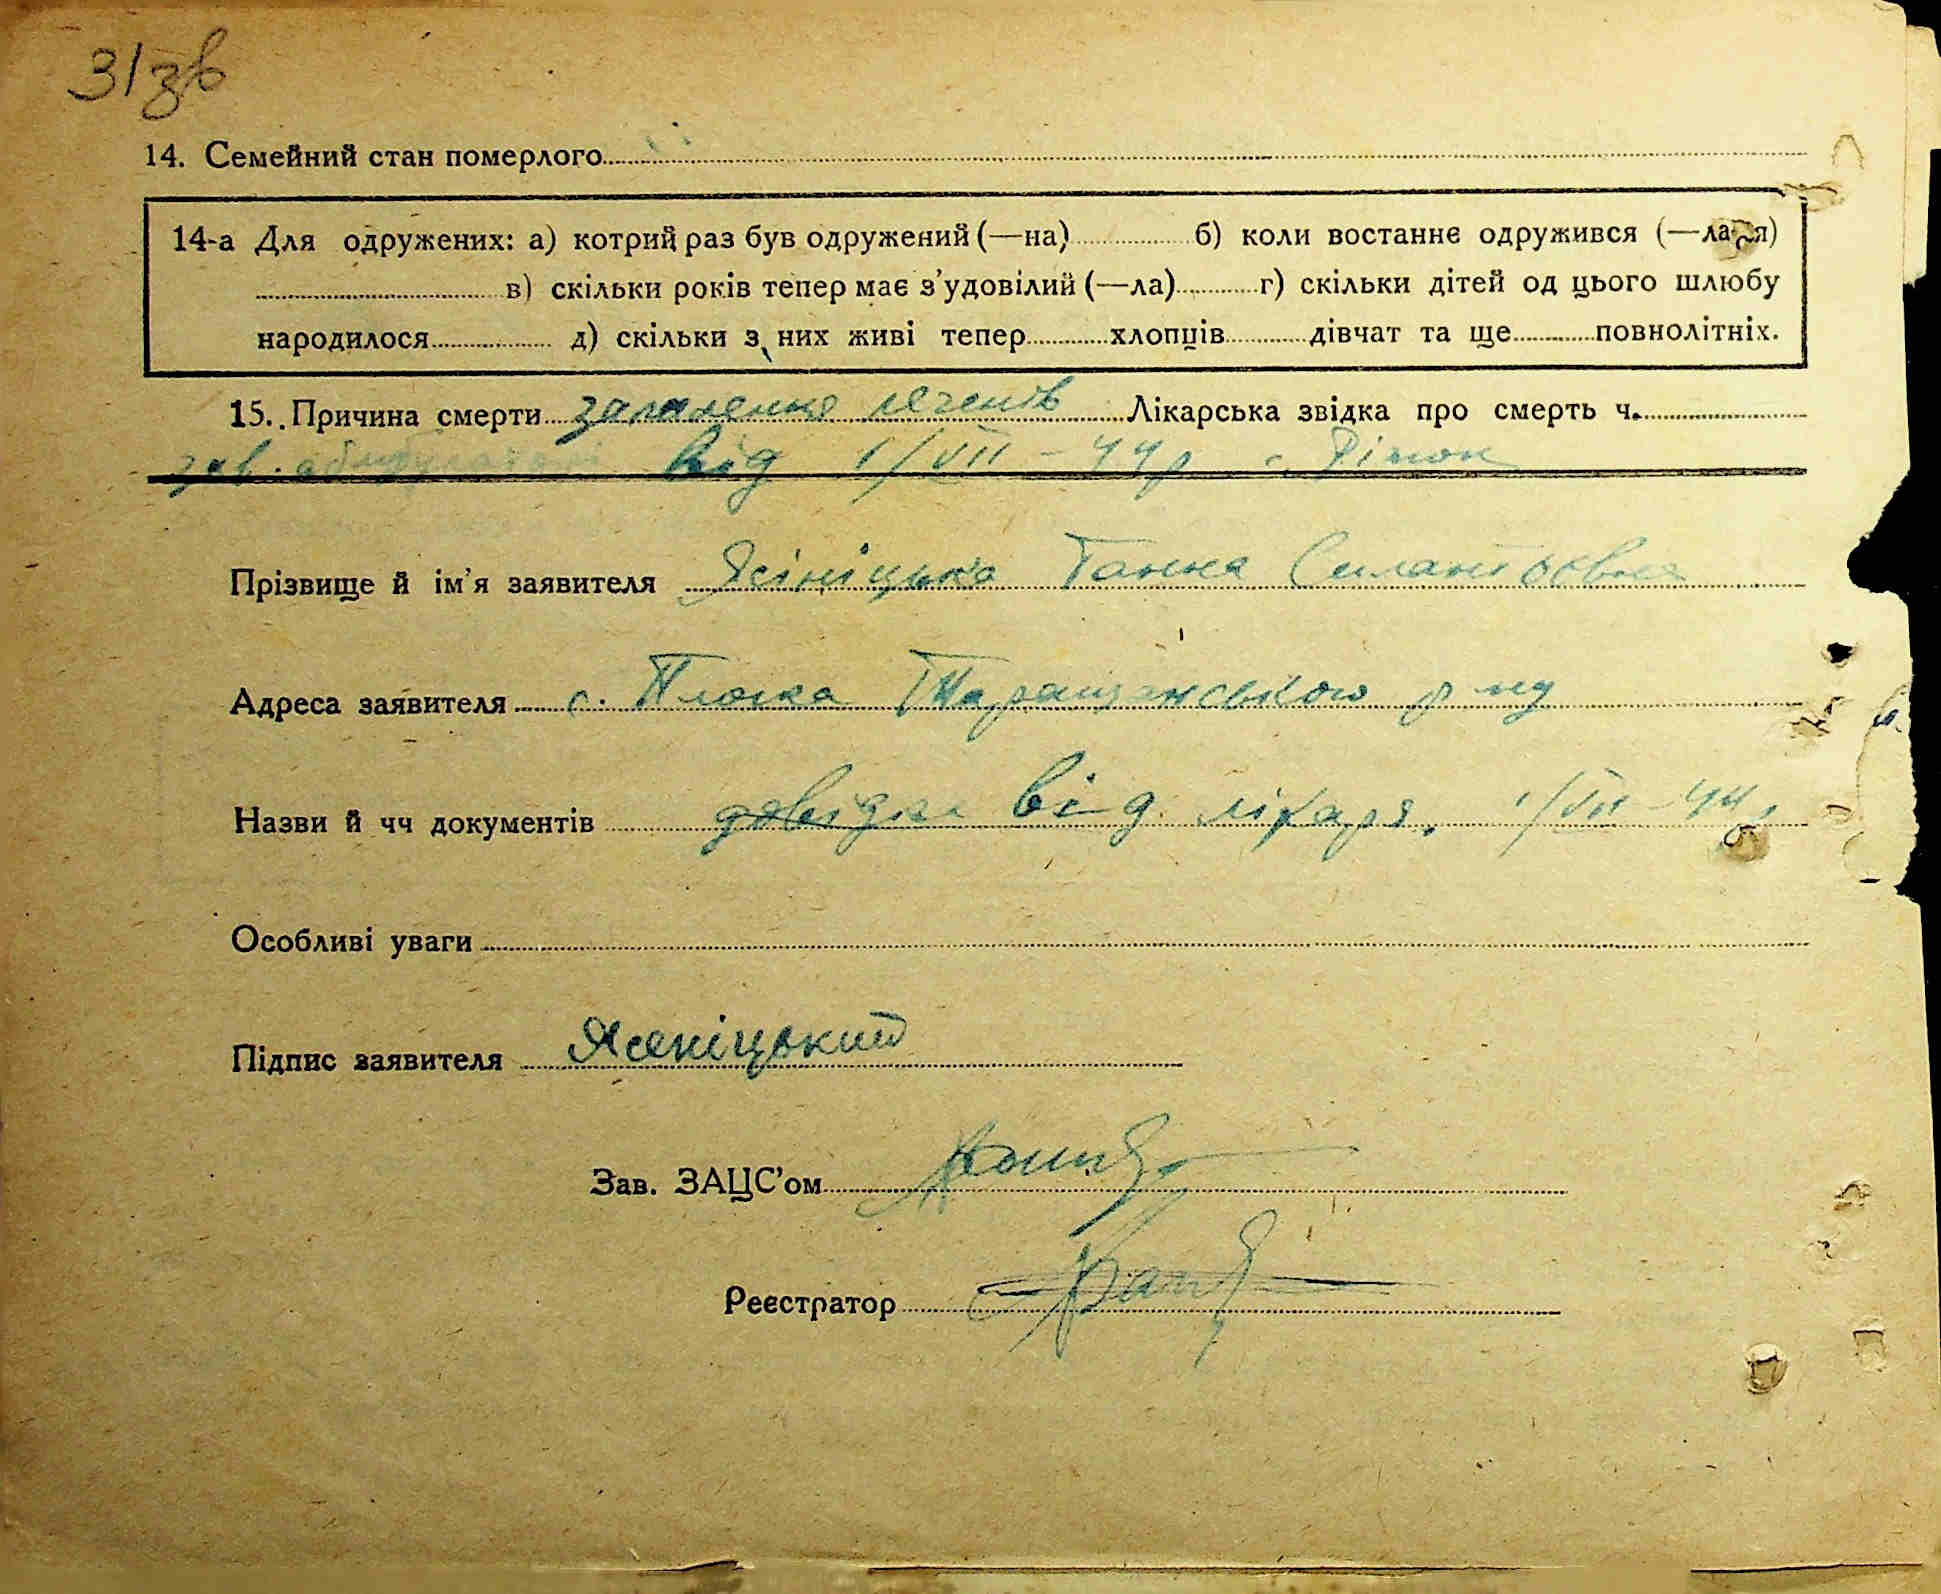 31зв
14. Семейний стан померлого
14-а Для одружених: а) котрий раз був одружений (—на) б) коли востаннє одружився (—лася)
в) скільки років тепер має з'удовілий (—ла) г) скільки дітей од цього шлюбу
народилося д) скільки з них живі тепер хлопців дівчат та ще повнолітніх.
15. Причина смерти запаленне печенів Лікарська звідка про смерть ч.
зав. від 1/VII – 44 р
Прізвище й ім'я заявителя Ясініцька Ганна Силантьовна
Адреса заявителя с. Плоска Таращанського р-ну
Назви й чч документів довідка від лікаря. 1/VII – 44 р
Особливі уваги
Підпис заявителя Ясеніцький
Зав. ЗАЦС'ом
Реєстратор